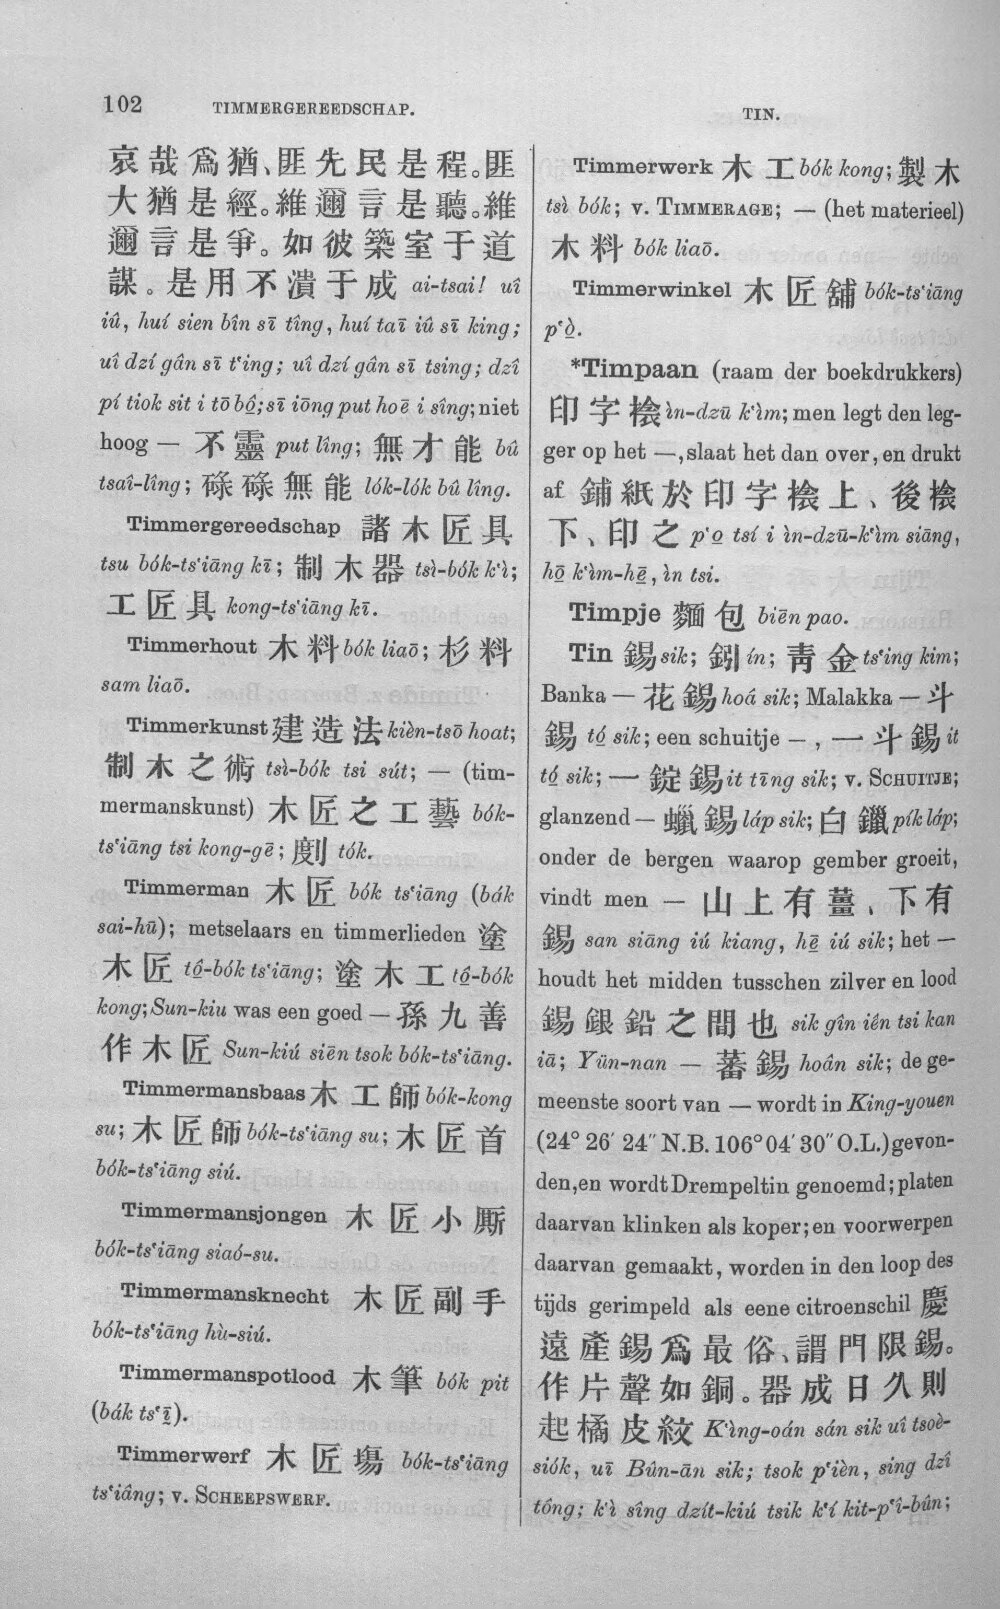 102
TIMMERGEREEDSCHAP.
TIN.
哀哉爲猶、匪先民是程。匪
大猶是經。維邇言是聽。維
邇言是爭。如彼築室于道
謀。是用不潰于成 ai-tsai! uî
iû, huí sien bîn sī tîng, huí taī iû sī king;
uî dzí gân sī tʻing; uî dzí gân sī tsing; dzî
pí tiok sit i tō bô̤; sī iōng put hoē i sîng; niet
hoog — 不靈 put lîng; 無才能 bû
tsaî-lîng; 碌碌無能 lók-lók bû lîng.
Timmergereedschap 諸木匠具
tsu bók-tsʻiāng kī; 制木器 tsì-bók kʻì;
工匠具 kong-tsʻiāng kī.
Timmerhout 木料 bók liaō; 杉料
sam liaō.
Timmerkunst 建造法 kièn-tsō hoat;
制木之術 tsì-bók tsi sút; — (tim-
mermanskunst) 木匠之工藝 bók-
tsʻiāng tsi kong-gē; 剫 tók.
Timmerman 木匠 bók tsʻiāng (bák
sai-hū); metselaars en timmerlieden 塗
木匠 tô̤-bók tsʻiāng; 塗木工 tô̤-bók
kong; Sun-kiu was een goed — 孫九善
作木匠 Sun-kiú siēn tsok bók-tsʻiāng.
Timmermansbaas 木工師 bók-kong
su; 木匠師 bók-tsʻiāng su; 木匠首
bók-tsʻiāng siú.
Timmermansjongen 木匠小厮
bók-tsʻiāng siaó-su.
Timmermansknecht 木匠副手
bók-tsʻiāng hù-siú.
Timmermanspotlood 木筆 bók pit
(bák tsʻī).
Timmerwerf 木匠塲 bók-tsʻiāng
tsʻiâng; v. SCHEEPSWERF.
Timmerwerk 木工 bók kong; 製木
tsì bók; v. TIMMERAGE; — (het materieel)
木料 bók liaō.
Timmerwinkel 木匠舖 bók-tsʻiāng
pʻò̤.
*Timpaan (raam der boekdrukkers)
印字㯲 ìn-dzū kʻìm; men legt den leg-
ger op het —, slaat het dan over, en drukt
af 鋪紙於印字㯲上、後㯲
下、印之 pʻo̤ tsí i ìn-dzū-kʻìm siāng,
hō̤ kʻìm-hē̤, ìn tsi.
Timpje 麵包 biēn pao.
Tin 錫 sik; 鈏 ín; 靑金 tsʻing kim;
Banka — 花錫 hoá sik; Malakka — 斗
錫 tó̤ sik; een schuitje — , 一斗錫 it
tó̤ sik; 一錠錫 it tīng sik; v. SCHUITJE;
glanzend — 蠟錫 láp sik; 白鑞 pík láp;
onder de bergen waarop gember groeit,
vindt men — 山上有薑、下有
錫 san siāng iú kiang, hē̤ iú sik; het —
houdt het midden tusschen zilver en lood
錫銀鉛之間也 sik gîn iên tsi kan
iā; Yün-nan — 蕃錫 hoân sik; de ge-
meenste soort van — wordt in King-youen
(24° 26′ 24″ N.B. 106° 04′ 30″ O.L.) gevon-
den, en wordt Drempeltin genoemd; platen
daarvan klinken als koper; en voorwerpen
daarvan gemaakt, worden in den loop des
tijds gerimpeld als eene citroenschil 慶
遠產錫爲最俗、謂門限錫。
作片聲如銅。器成日久則
起橘皮紋 Kʻìng-oán sán sik uî tsoè-
siók, uī Bûn-ān sik; tsok pʻièn, sing dzî
tông; kʻì sîng dzít-kiú tsik kʻí kit-pʻî-bûn;